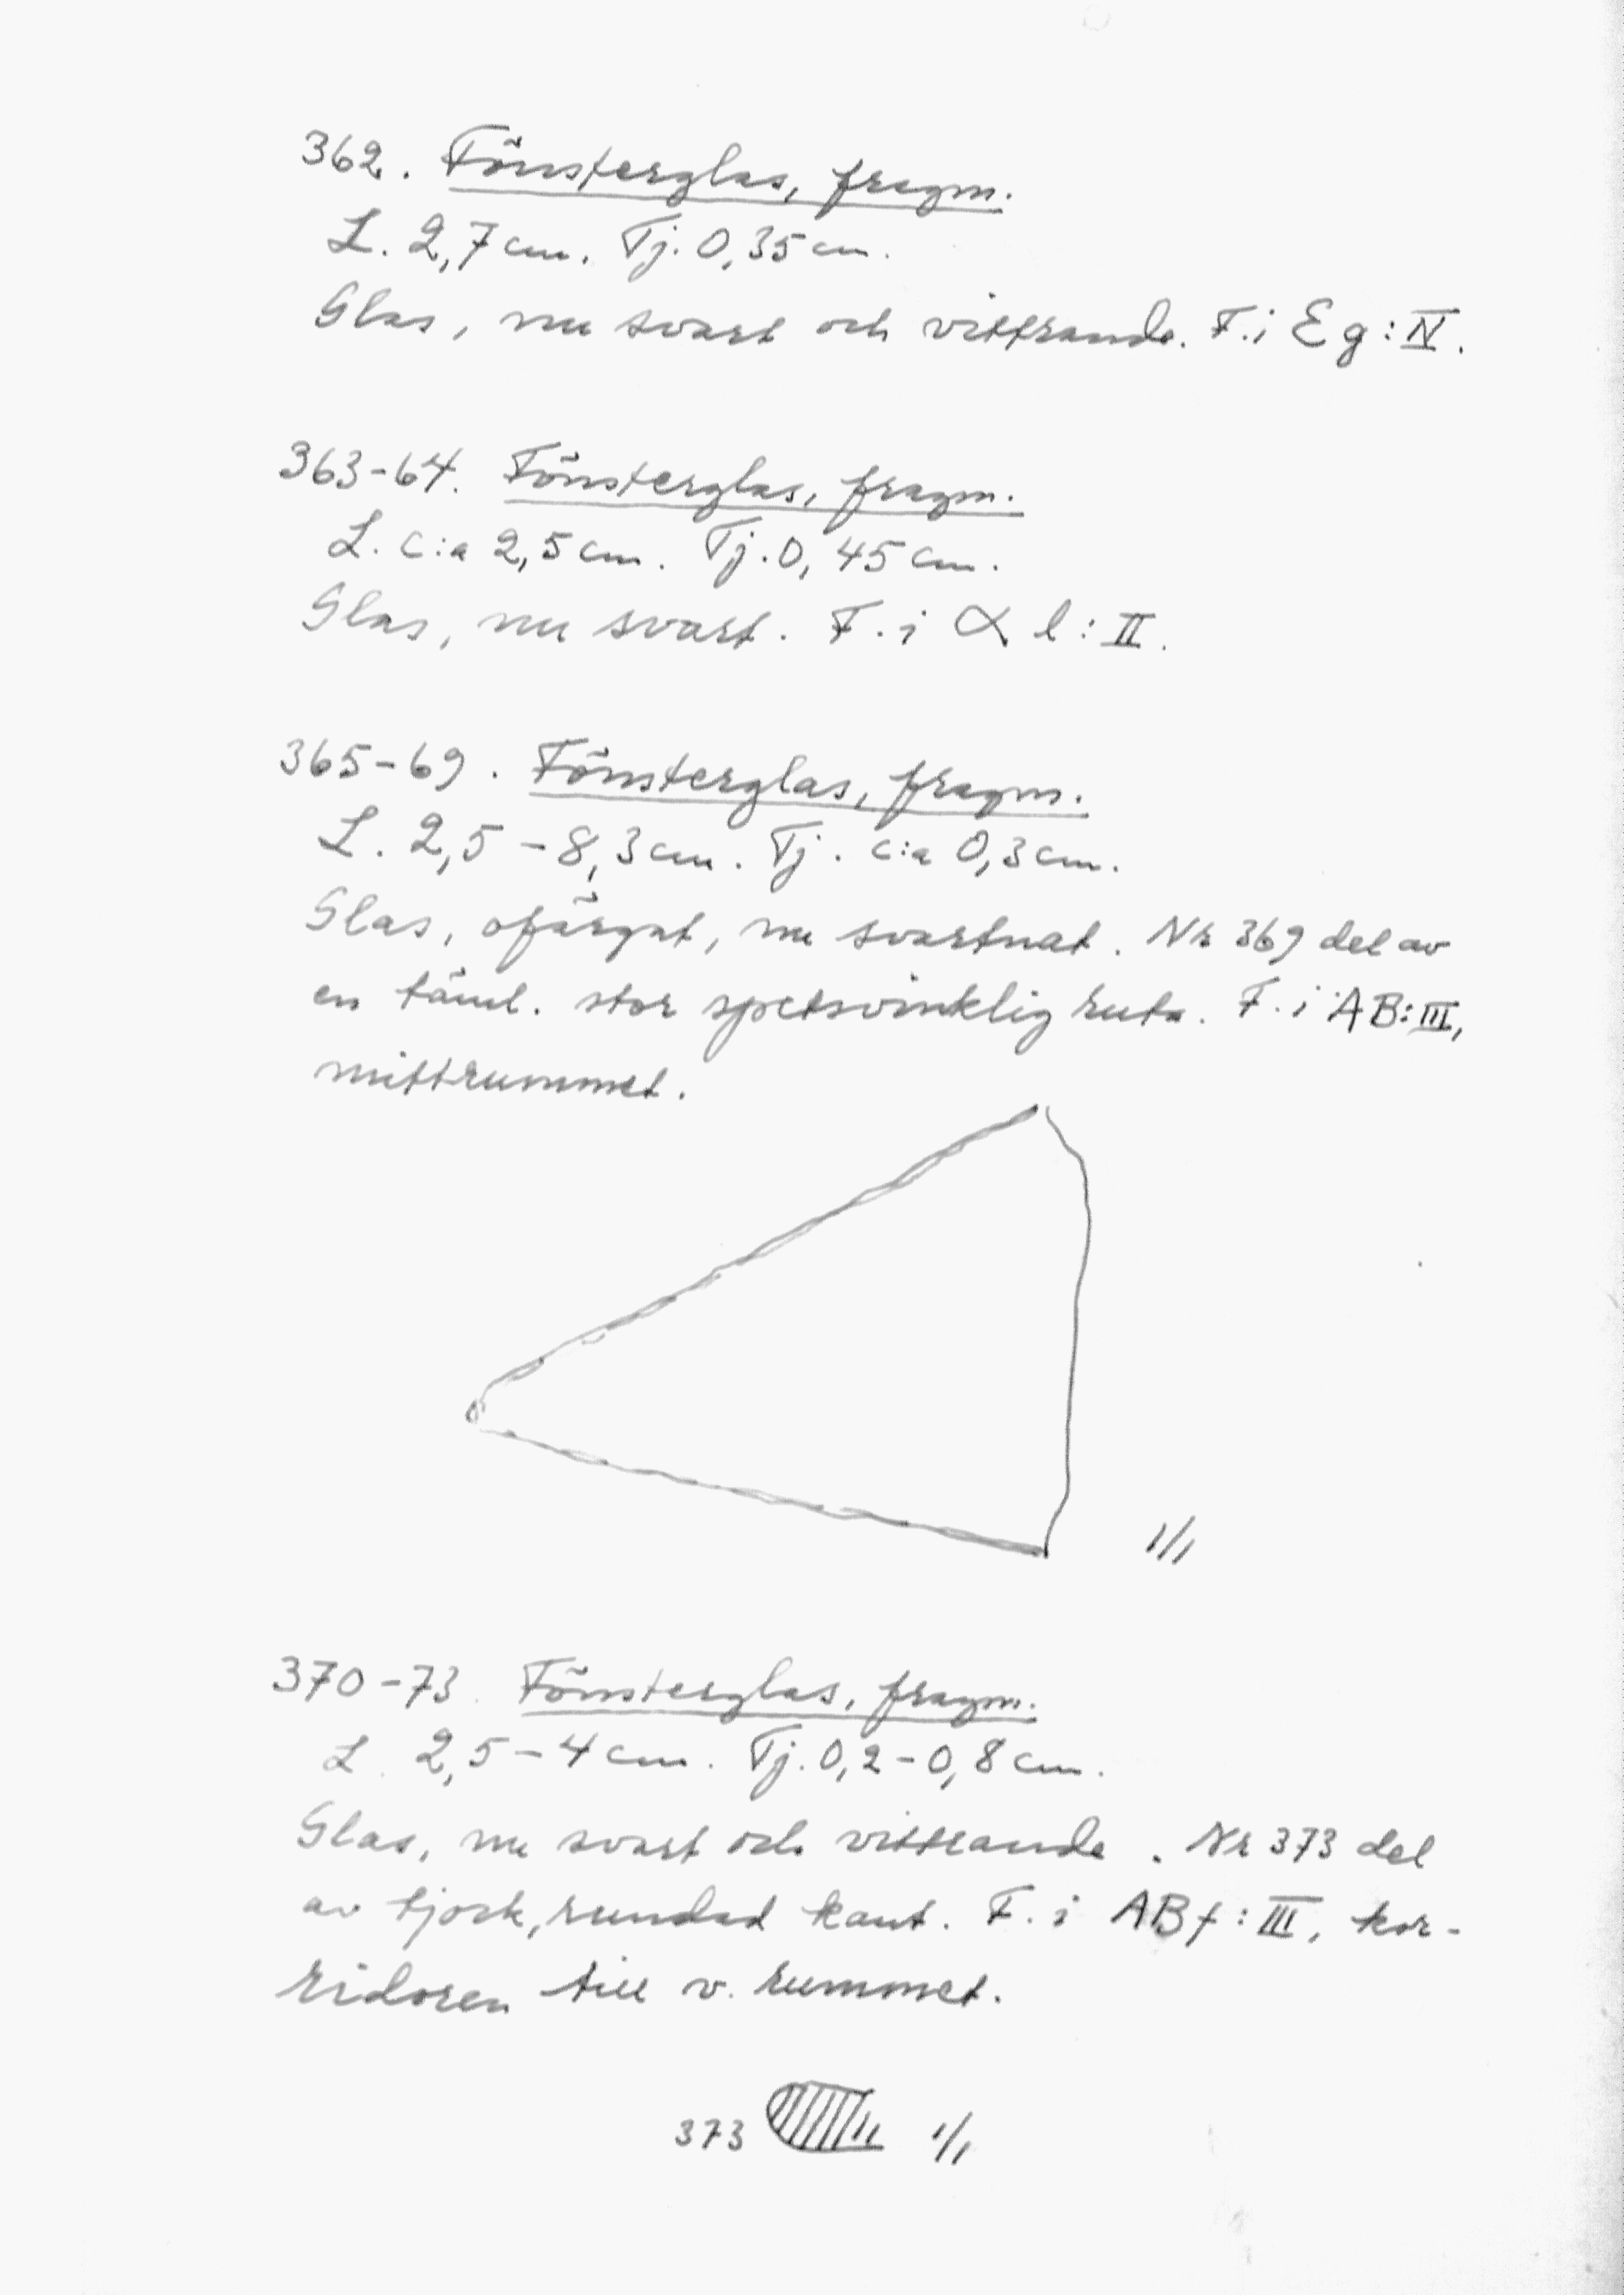 362. Fönsterglas, fragm.
L. 2,7 cm. Tj. 0,35 cm.
Glas, nu svart och vittrande. F. i E g : IV.
363-64. Fönsterglas, fragm.
L. c:a 2,5 cm. Tj. 0,45 cm.
Glas, nu svart. F. i α l : II.
365-69. Fönsterglas, fragm.
L. 2,5 - 8,3 cm. Tj. c:a 0,3 cm.
Glas, ofärgat, nu svartnat. Nr 369 del av
en täml. stor spetsvinklig ruta. F. i AB: III,
mittrummet.
1/1
370-73. Fönsterglas, fragm.
L. 2,5 - 4 cm. Tj. 0,2 - 0,8 cm.
Glas, nu svart och vittrande. Nr 373 del
av tjock, rundad kant. F. i ABf : III, kor-
ridoren till v. rummet.
373 1/1